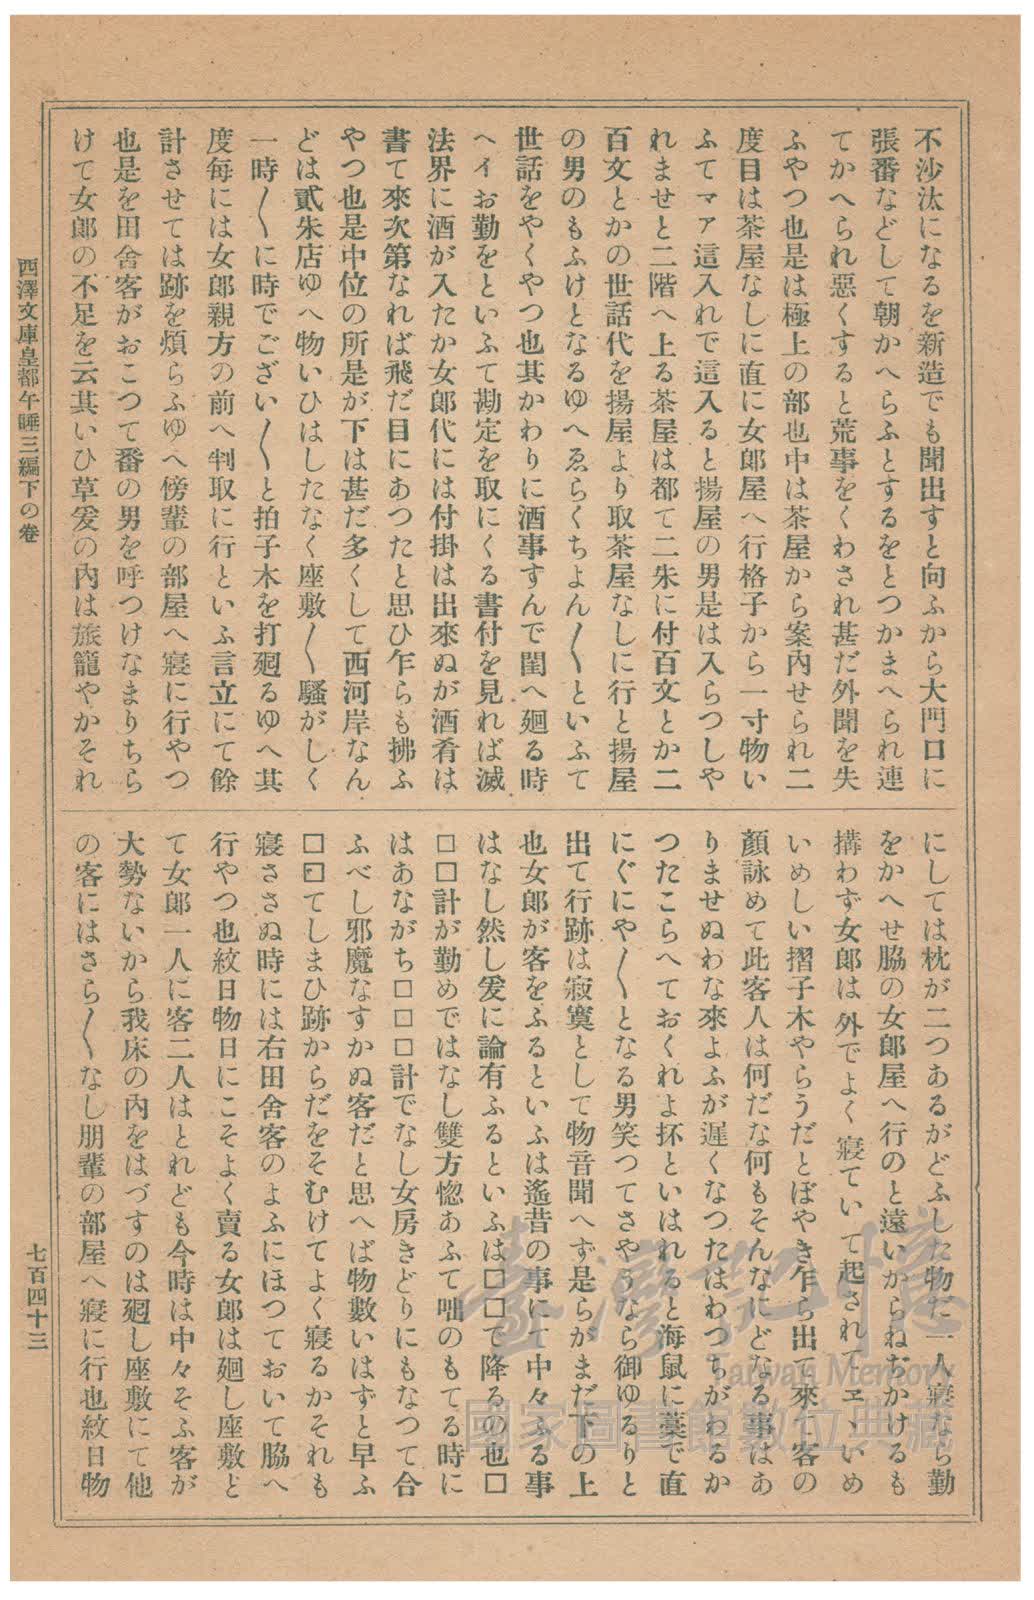 不沙汰になるを新造でも聞出すと向ふから大門口に
張番などして朝かへらふとするをとつかまへられ連
てかへられ惡くすると荒事をくわされ甚だ外聞を失
ふやつ也是は極上の部也中は茶屋から案內せられ二
度目は茶屋なしに直に女郞屋へ行格子から一寸物い
ふてマア這入れで這入ると揚屋の男是は入らつしや
れませと二階へ上る茶屋は都て二朱に付百文とか二
百文とかの世話代を揚屋より取茶屋なしに行と揚屋
の男のもふけとなるゆへゑらくちよん〱といふて
世話をやくやつ也其かわりに酒事すんで閨へ廻る時
ヘイお勤をといふて勘定を取にくる書付を見れば滅
法界に酒が入たか女郞代には付掛は出來ぬが酒肴は
書て來次第なれば飛だ目にあつたと思ひ乍らも拂ふ
やつ也是中位の所是が下は甚だ多くして西河岸なん
どは貳朱店ゆへ物いひはしたなく座敷〱騷がしく
一時〱に時でござい〱と拍子木を打廻るゆへ其
度每には女郞親方の前へ判取に行といふ言立にて餘
計させては跡を煩らふゆへ傍輩の部屋へ寢に行やつ
也是を田舍客がおこつて番の男を呼つけなまりちら
けて女郞の不足を云其いひ草爰の內は旅籠やかそれ
にしては枕が二つあるがどふした物だ一人寢なら勤
をかへせ脇の女郞屋へ行のと遠いからねぢかけるも
搆わず女郞は外でよく寢てい て起されてヱヽいめ
いめしい摺子木やらうだとぼやき乍ら出て來て客の
顏詠めて此客人は何だな何もそんなにどなる事はあ
りませぬわな來よふが遲くなつたはわつちがわるか
つたこらへておくれよ抔といはれると海鼠に藁で直
にぐにや〱となる男笑つてさやうなら御ゆるりと
出て行跡は寂寞として物音聞へず是らがまだ下の上
也女郞が客をふるといふは遙昔の事にて中々ふる事
はなし然し爰に論有ふるといふは□□で降るの也□
□□計が勤めではなし雙方惚あふて咄のもてる時に
はあながち□□□計でなし女房きどりにもなつて合
ふべし邪魔なすかぬ客だと思へば物數いはずと早ふ
□□てしまひ跡からだをそむけてよく寢るかそれも
寢ささぬ時には右田舍客のよふにほつておいて脇へ
行やつ也紋日物日にこそよく賣る女郞は廻し座敷と
て女郞一人に客二人はとれども今時は中々そふ客が
大勢ないから我床の內をはづすのは廻し座敷にて他
の客にはさら〱なし朋輩の部屋へ寢に行也紋日物
西澤文庫皇都午睡三編下の卷
七百四十三
臺灣記憶
Taiwan Memory
國家圖書館數位典藏